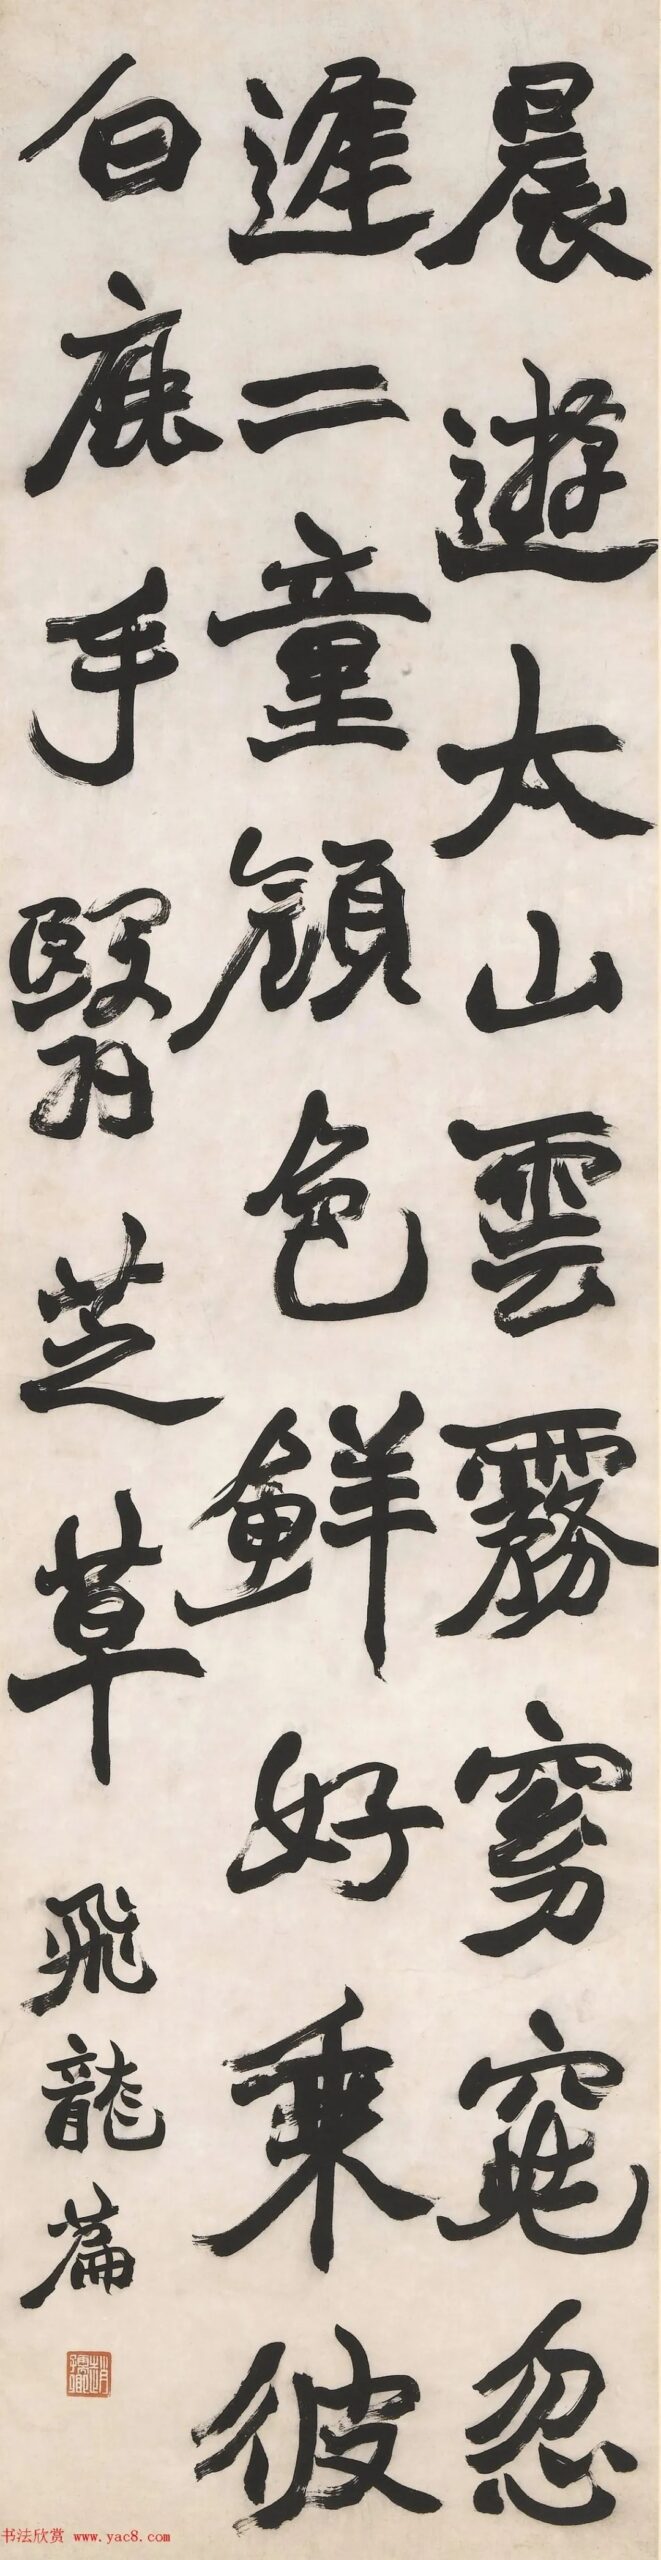 晨遊太山雲霧窈窕忽
逢二童顏色鮮好乘彼
白鹿手翳芝草
飛龍篇
书法欣赏 www.yac8.com